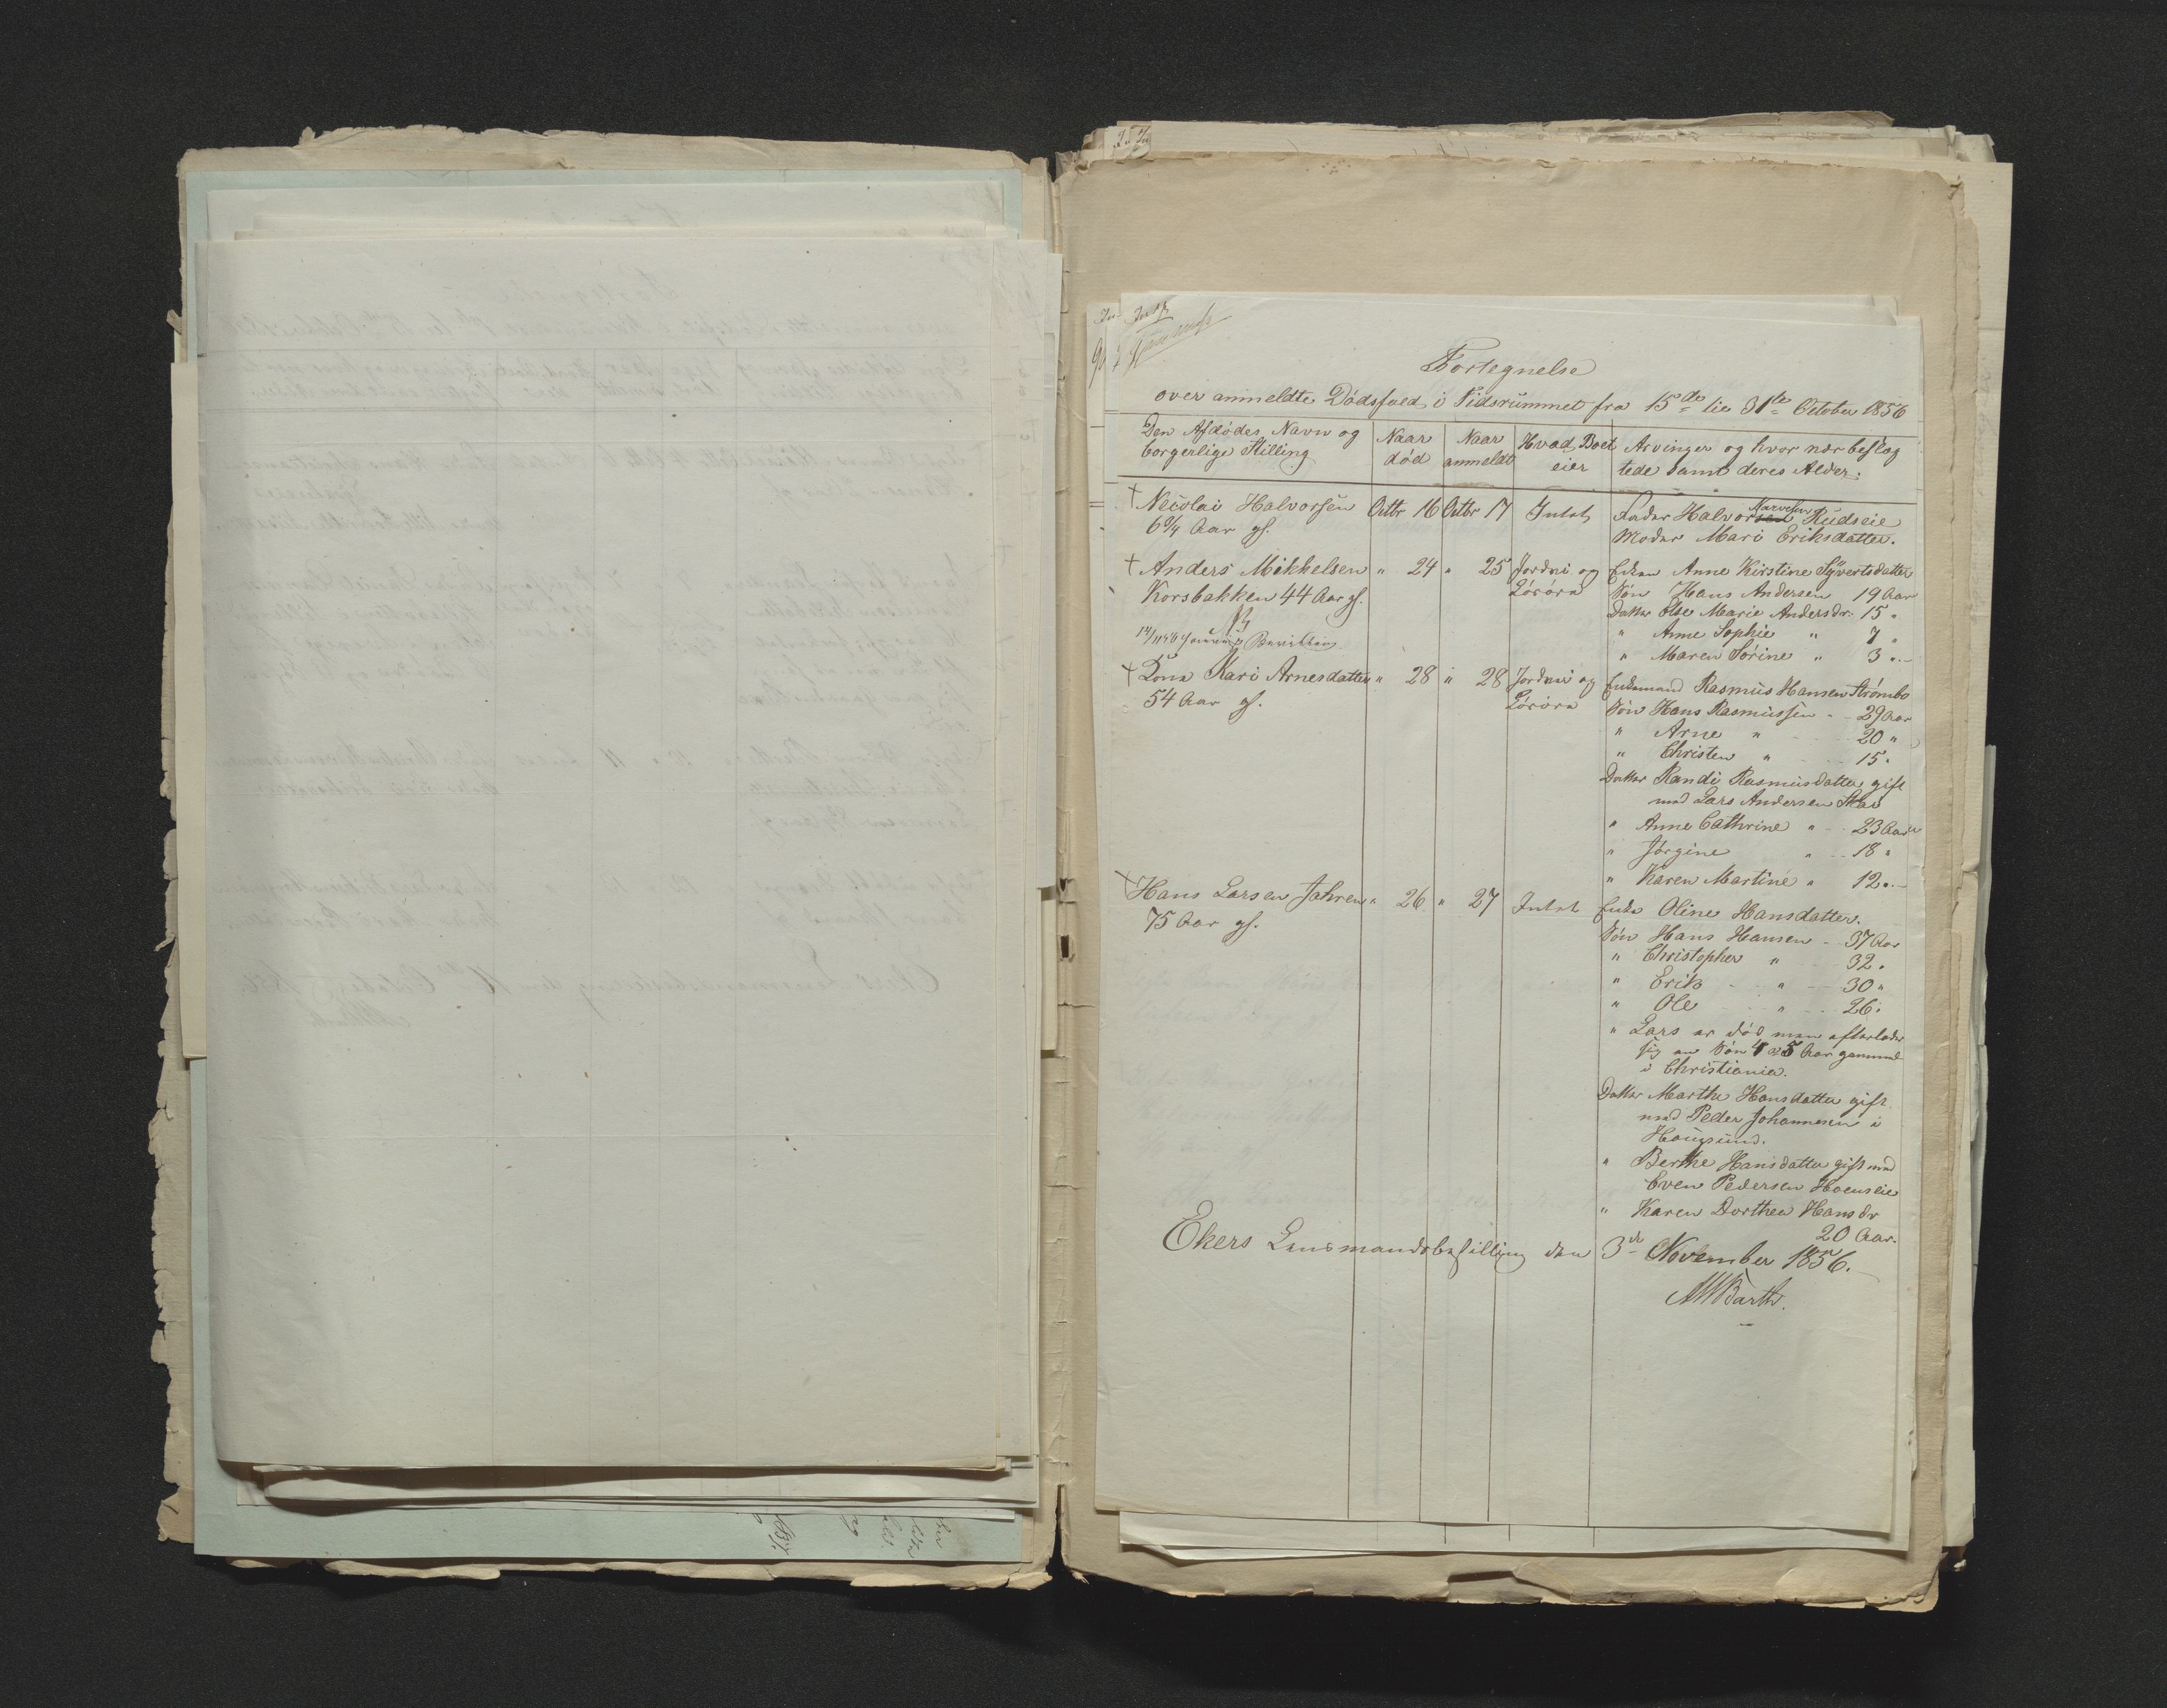 Fortegnelse
over anmeldte Dødsfald i Tidsrummet fra 15de til 31te October 1856
Den Afdødes Navn og borgerlige Stilling
Naar død
Naar anmeldt
Hvad Boet eier
Arvinger og hvor nær beslægtede samt deres Alder.
† Nicolai Halvorsen Octbr 16 Octbr 17 Intet Fader Halvorsen Narvesen Rudseie
6 Aar gl. Moder Mari Eriksdatter.
† Anders Mikkelsen " 24 " 25 Jordei og Enken Anne Kirstine Syvertsdatter
Korsbakken 44 Aar gl. Løsøre Søn Hans Andersen 19 Aar
Datter Else Marie Andersdr. 15 "
" Anne Sophie " 7 "
" Maren Sørine " 3 "
† Kona Kari Arnesdatter " 28 " 28 Jordei og Enkemand Rasmus Hansen Strømbo
54 Aar gl. Løsøre Søn Hans Rasmussen 29 Aar
" Arne " 20 "
" Christen " 15 "
Datter Randi Rasmusdatter gift
med Lars Andersen
" Anne Cathrine " 23 Aar
" Jørgine " 18 "
" Karen Martine " 12 "
† Hans Larsen Jahren " 26 " 27 Intet Enke Oline Hansdatter.
75 Aar gl. Søn Hans Hansen 37 Aar
" Christopher " 32 "
" Erik " 30 "
" Ole " 26 "
" Lars er død men efterlader
sig en Søn 4 a 5 Aar gammel
i Christiania.
Datter Marthe Hansdatter gift
med Peder Johannesen i
Hougsund.
" Berthe Hansdatter gift med
Even Pedersen Hoenseie
" Karen Dorthea Hansdr
20 Aar.
Ekers Lensmandsbestilling den 3de November 1856.
Barth.